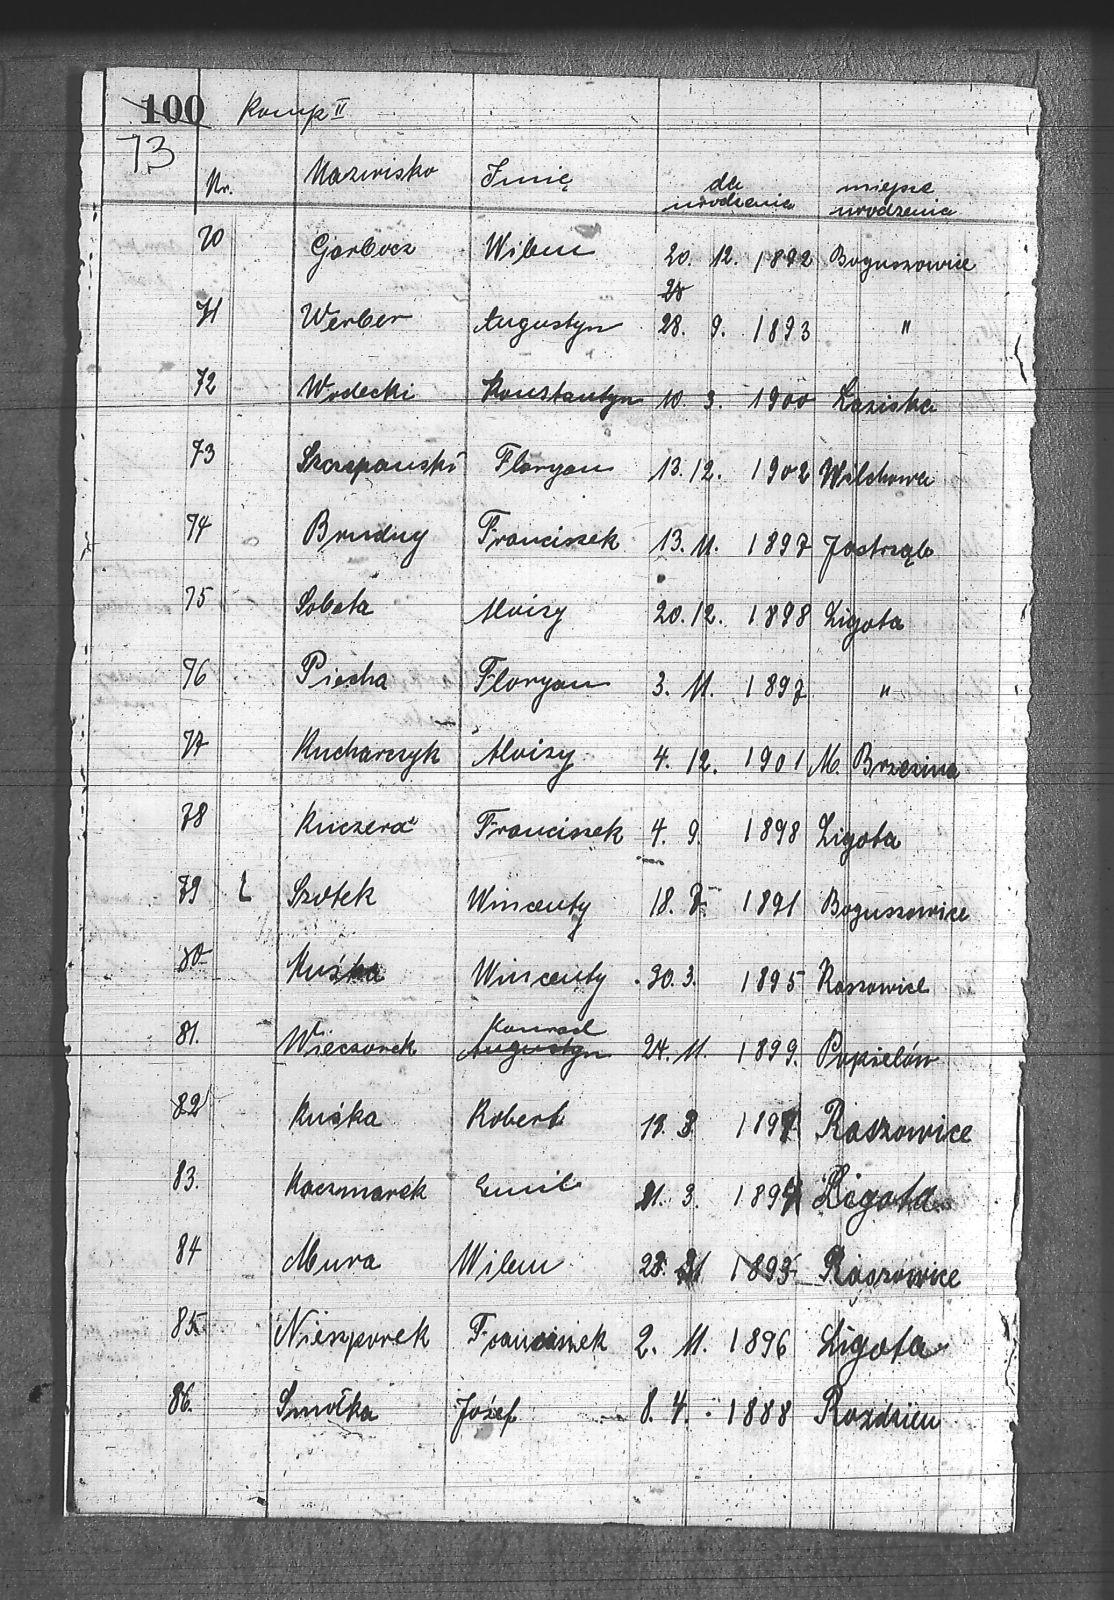 100 Komp II
73
Nr. Nazwisko Imię dta urodzenia miejsce urodzenia
70 Garbocz Wilem 20. 12. 1892 Boguszowice
28
71 Werber Augustyn 28. 9. 1893 "
72 Wodecki Konstantyn 10 3. 1900 Laziska
73 Szczepanski Floryan 13. 12. 1902 Wilchowa
74 Brudny Franciszek 13. 11. 1897 Jastrząb
75 Sobota Aloizy 20. 12. 1898 Ligota
76 Piecha Floryan 3. 11. 1897 "
77 Kucharczyk Aloizy 4. 12. 1901 M. Brzezina
78 Kuczera Franciszek 4. 9. 1898 Ligota
79 Szotek Wincenty 18. 7. 1891 Boguszowice
80 Kuśka Wincenty 30. 3. 1895 Roszowice
Konrad
81. Wieczorek Augustyn 24. 11. 1899. Popielów
82 Kuśka Robert 18. 3 1897 Raszowice
83. Kaczmarek Emil 21. 3. 1894 Ligota
84 Mura Wilem 28. 1895 Raszowice
85 Nieszporek Franciszek 2. 11. 1896 Ligota
86. Smołka Józef 8. 4. 1888 Rozdzien